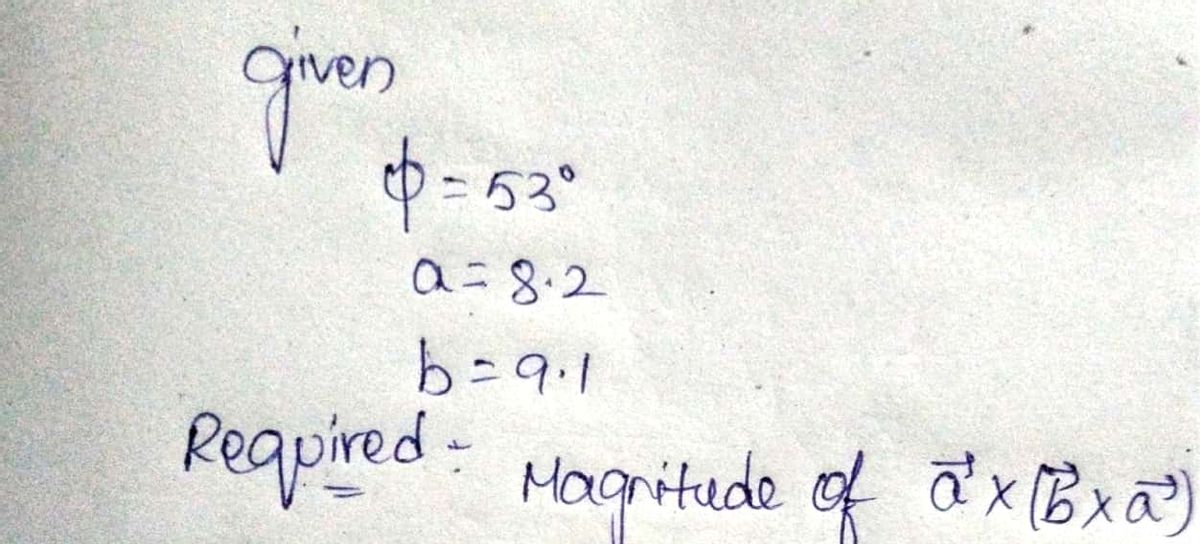 given
ϕ = 53°
a = 8.2
b = 9.1
Required :-
Magnitude of a⃗ × (b⃗ × a⃗)